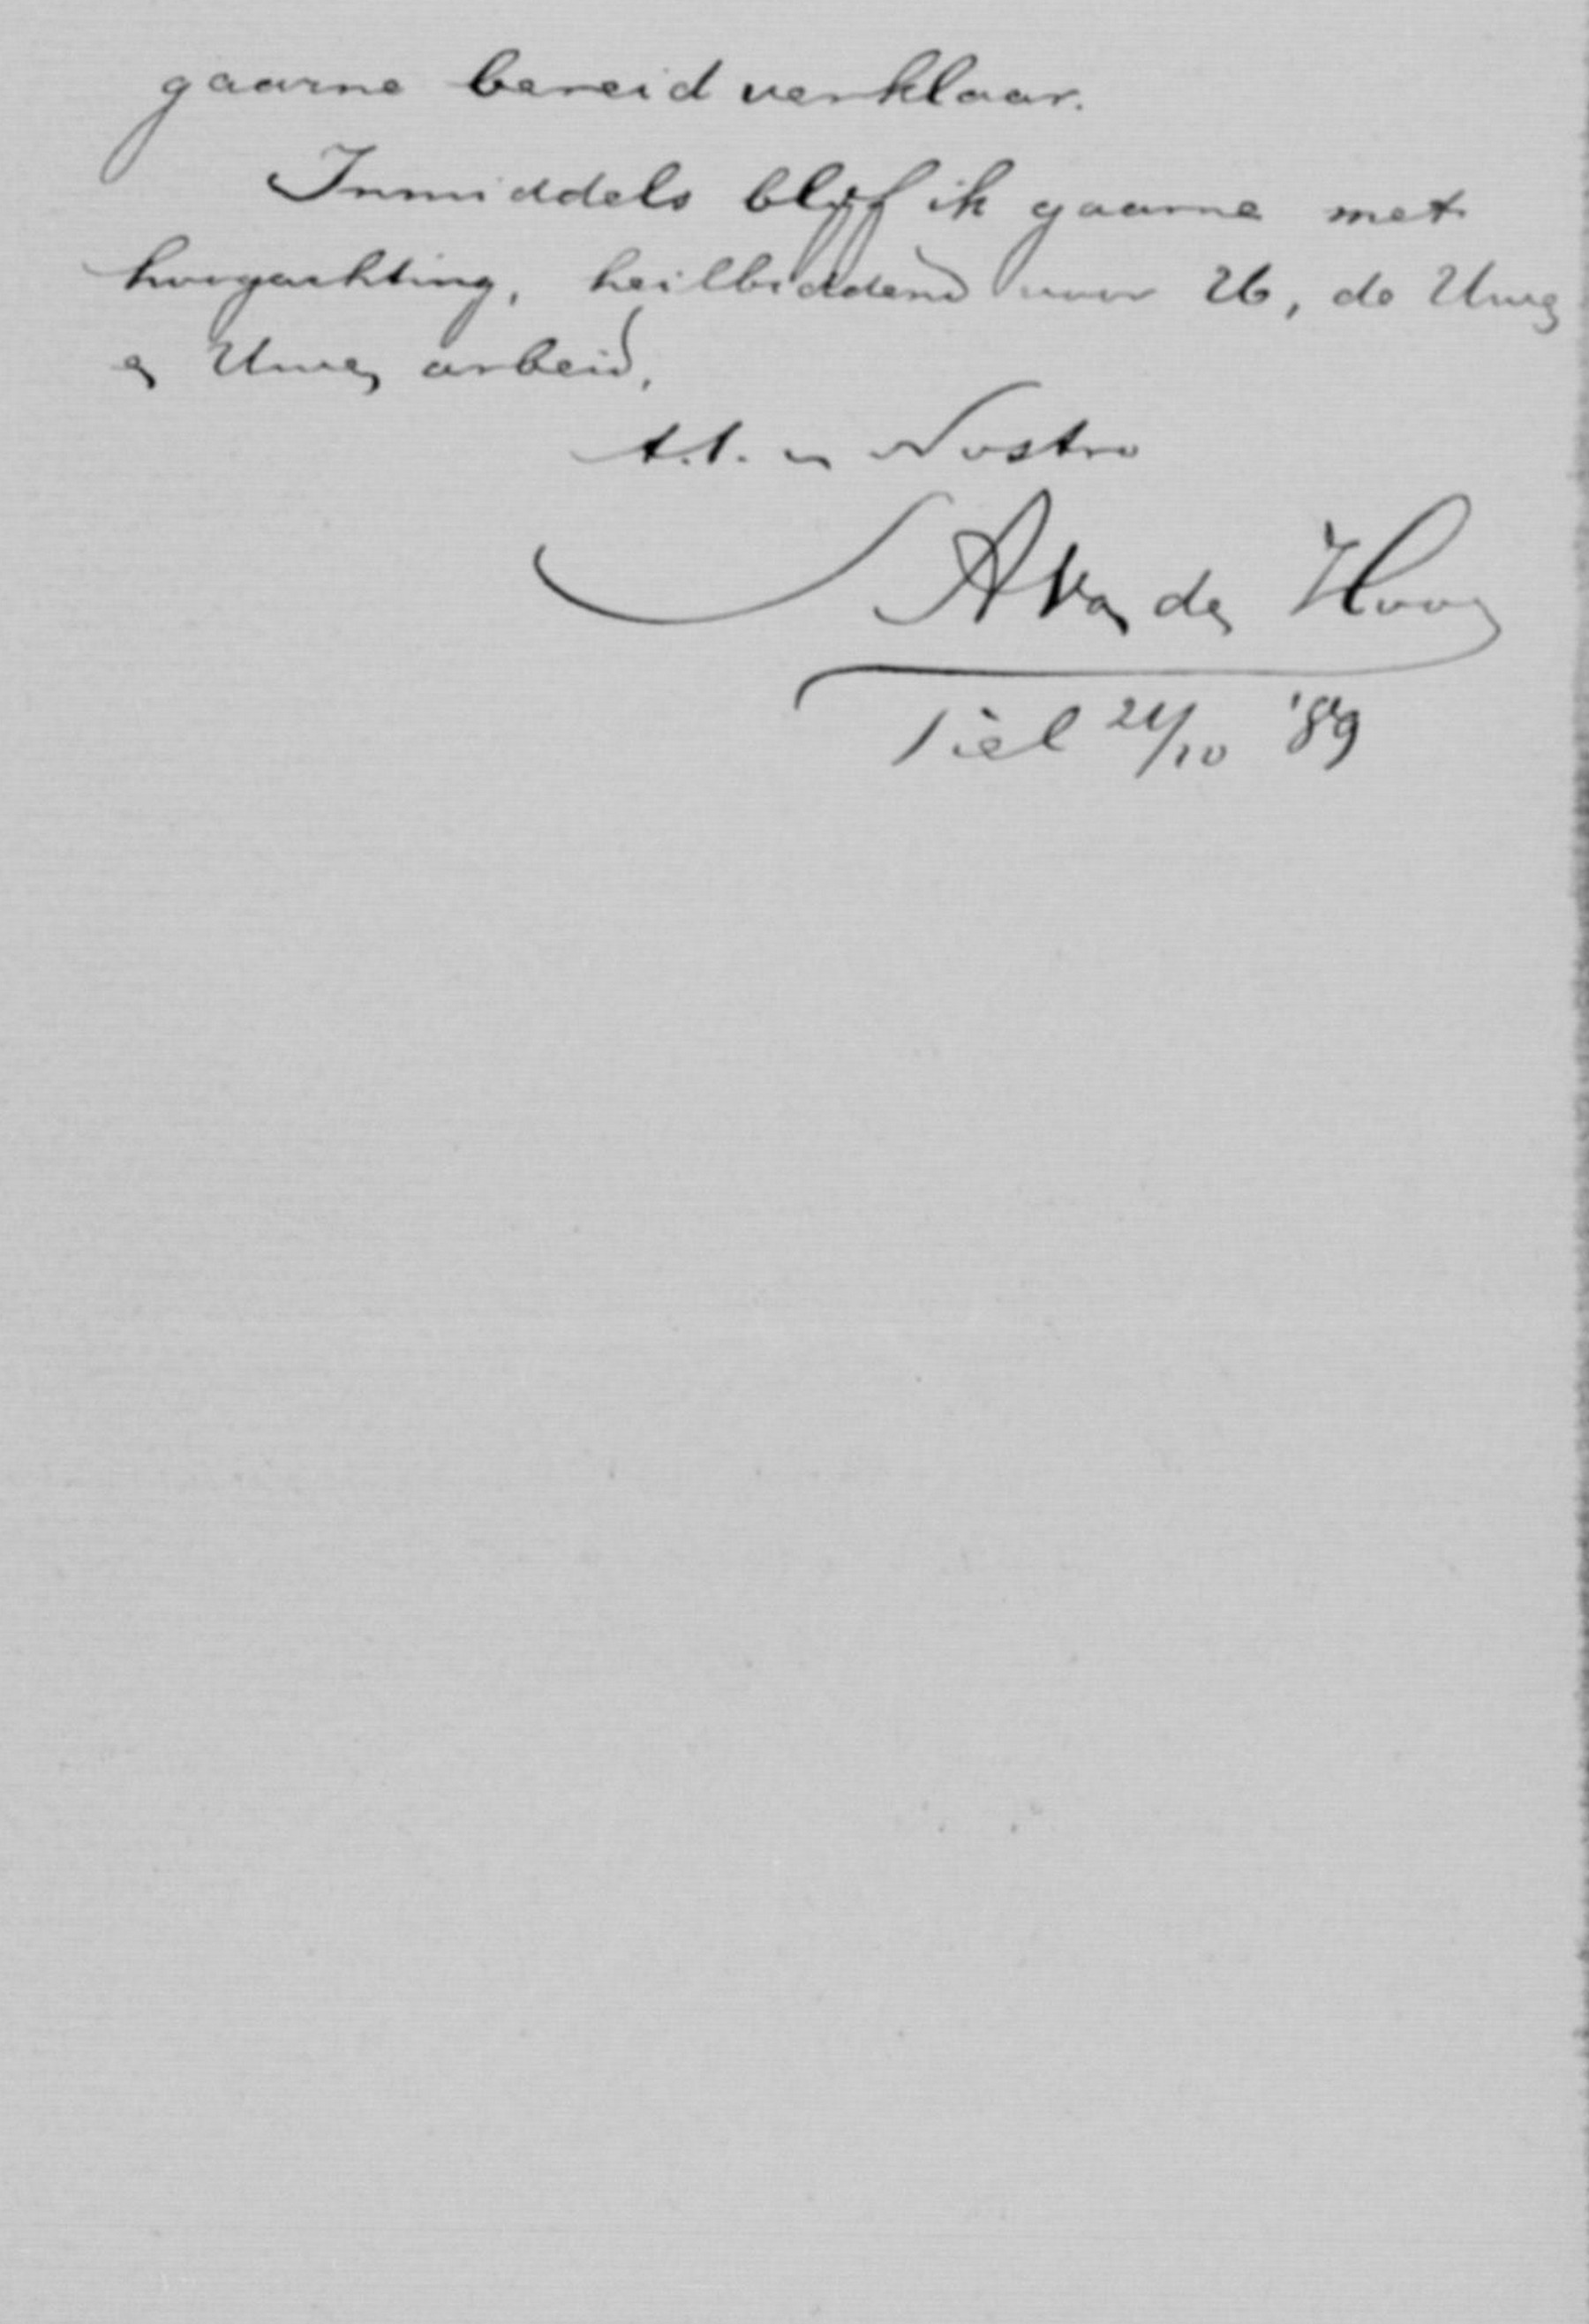 gaarne bereid verklaar.
Inmiddels blijf ik gaarne met
hoogachting, heilbiddend voor U, de Uwen
en Uwen arbeid,
t.t. in Nostro
A Van den Hoog
Tiel 21/10 '89